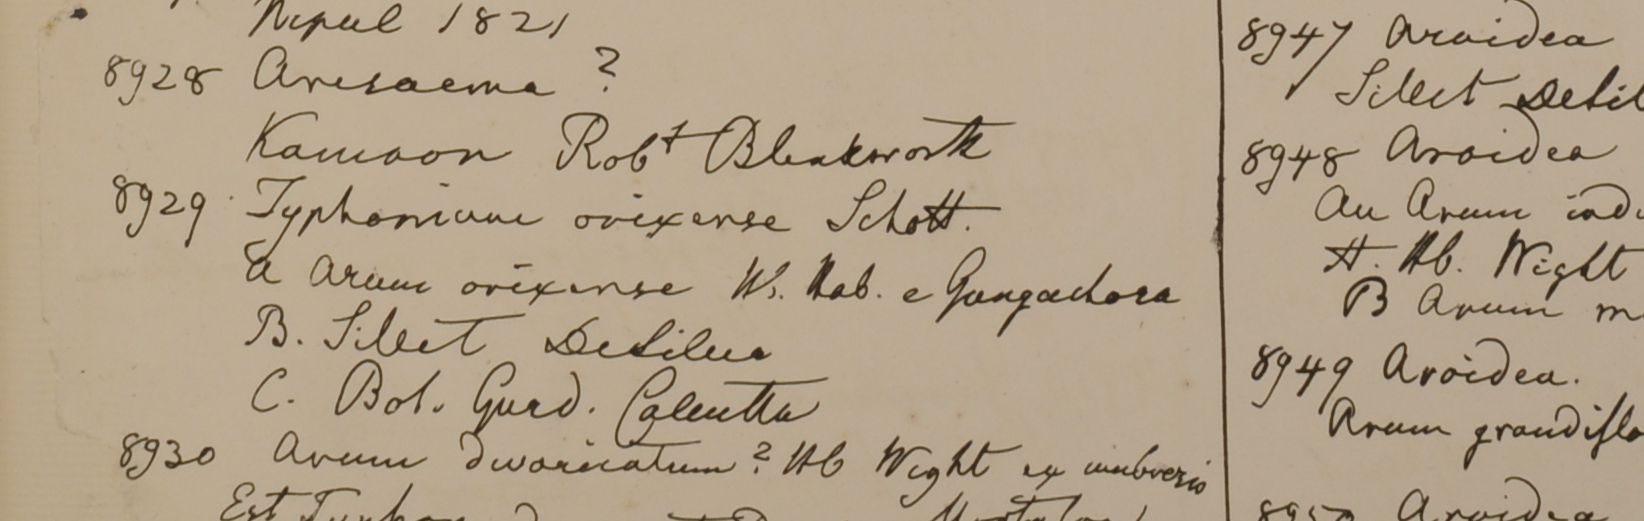 Nepul 1821
8928 Aresaema ?
Kamaon Robt Blinkworth
8929 Typhonium orixense Schott.
a Arum orixense W. Hab. e Gongachora
B. Sillet DeSilva
C. Bot. Gard. Calcutta
8930 Arum divaricatum ? Hb Wight ex
Est
8947 Aroidea
Sillet DeSil
8948 Aroidea
An Arum ind
H. Hb. Wight
B Arum m
8949 Aroidea.
Arum grandiflo
8950 Aroidea